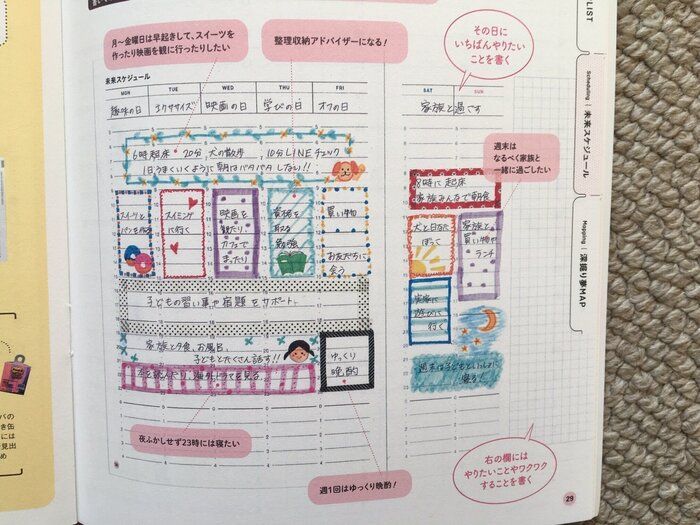 月〜金曜日は早起きして、スイーツを
作ったり映画を観に行ったりしたい
整理収納アドバイザーになる!
その日に
いちばんやりたい
ことを書く
LIST
Scheduling | 未来スケジュール
Mapping | 深掘り夢MAP
未来スケジュール
MON TUE WED THU FRI SAT SUN
趣味の日 エクササイズ 映画の日 学びの日 オフの日 家族と過ごす
6時起床 20分、犬の散歩、10分LINEチェック
1日うまくいくように朝はバタバタしない!!
週末は
なるべく家族と
一緒に過ごしたい
8時に起床
家族みんなで朝食
スイーツと
パンを作る
スイミング
に行く
映画を
観たり
カフェで
まったり
資格を
取る
勉強
買い物
お友だちに
会う
犬と日なた
ぼっこ
家族と
買い物や
ランチ
実家に
遊びに
行く
子どもの習い事や宿題をサポート
家族と夕食、お風呂、
子どもとたくさん話す!!
ゆっくり
晩酌
本を読んだり、海外ドラマを見る
週末は子どもといっしょに
寝る!
夜ふかしせず23時には寝たい
週1回はゆっくり晩酌!
右の欄には
やりたいことやワクワク
することを書く
29